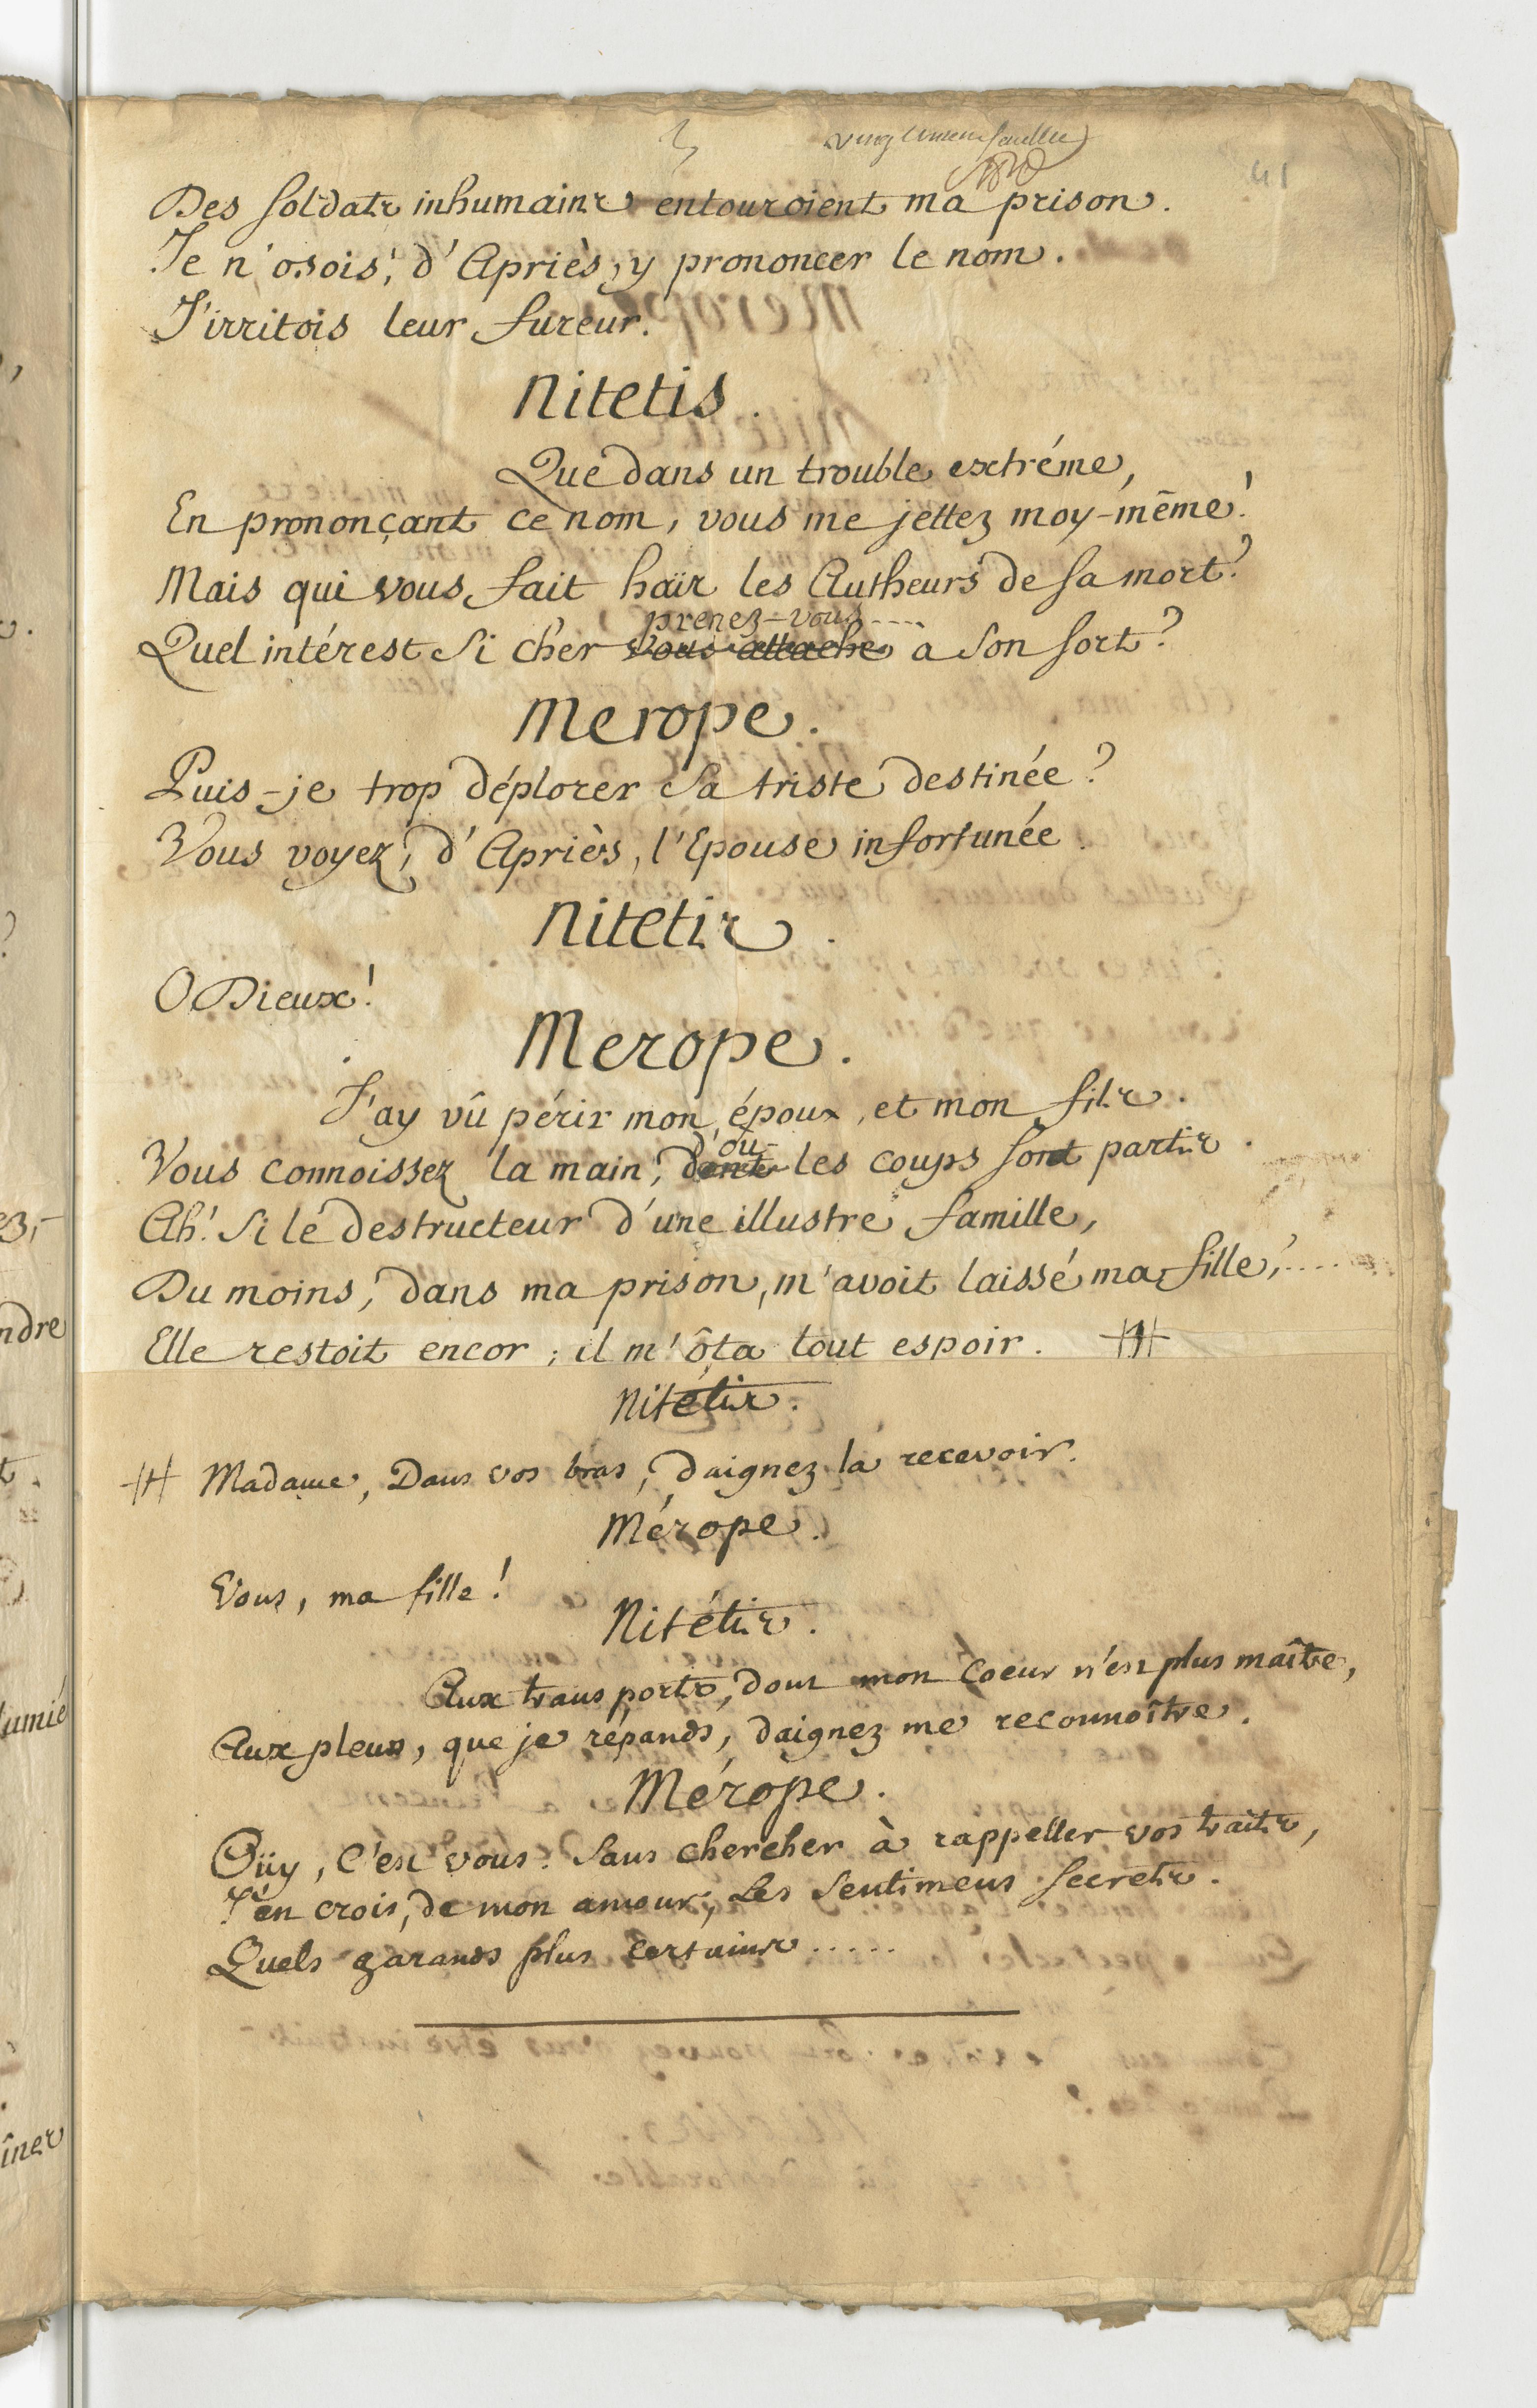 41
Des soldats inhumains entouroient ma prison.
Je n'osois, d'Apriès, y prononcer le nom.
J'irritois leur fureur.
Nitetis.
Que dans un trouble extréme,
En prononçant ce nom, vous me jettez moy-même!
Mais qui vous fait haïr les Autheurs de sa mort?
prenez-vous....
Quel intérest si cher vous attache à son sort?
Merope.
Puis-je trop déplorer sa triste destinée?
Vous voyez, d'Apriès, l'Epouse infortunée.
Nitetis.
O Dieux!
Merope.
J'ay vû périr mon époux, et mon fils.
d'où
Vous connoissez la main, dont les coups sont partis.
Ah! Si le destructeur d'une illustre famille,
Du moins, dans ma prison, m'avoit laissé ma fille,....
Elle restoit encor; il m'ôta tout espoir.
Nitétis.
Madame, Dans vos bras, daignez la recevoir.
Mérope.
Vous, ma fille!
Nitétis.
Aux transports, dont mon coeur n'est plus maître,
Aux pleurs, que je répands, daignez me reconnoître.
Mérope.
Oüy, C'est vous. Sans chercher à rappeller vos traits,
J'en crois, de mon amour, Les Sentimens secrets.
Quels garands plus certains.....